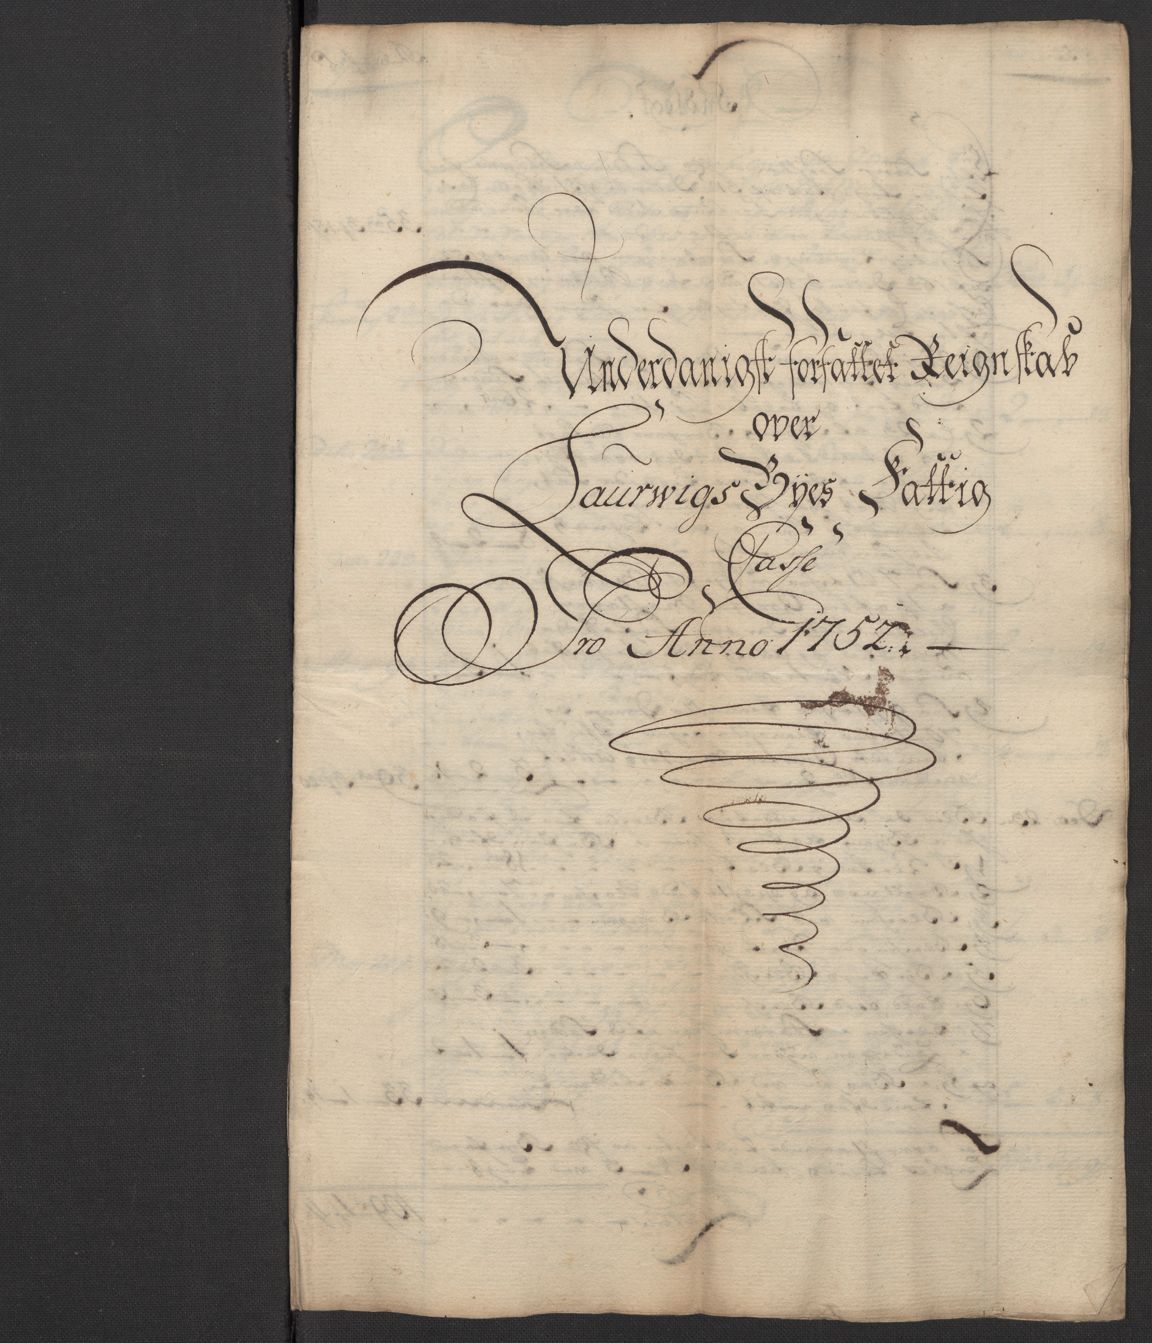 Underdanigst forfattet Reignskab
over
Laurwigs Byes Fattig
Casse
Pro Anno 1752